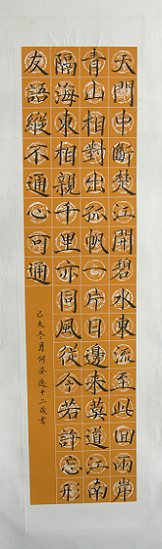 天門中斷楚江開碧水東流至此回兩岸
青山相對出孤帆一片日邊來莫道江南
隔海東相親千里亦同風從今若許忘形
友語縱不通心可通
己亥冬月何姿逸十二歲書